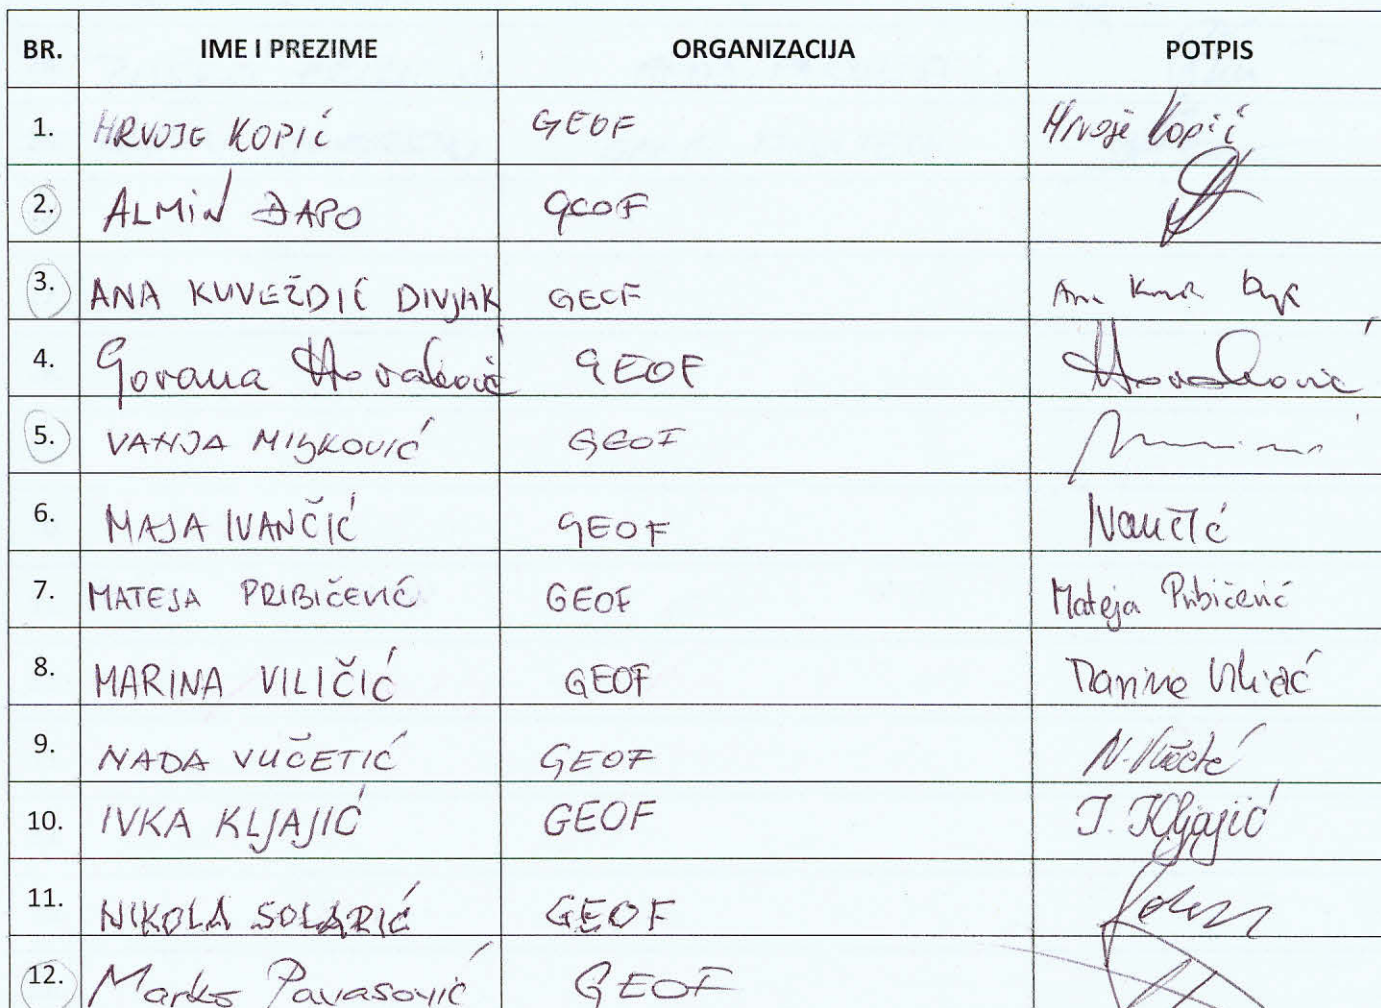 BR. IME I PREZIME ORGANIZACIJA POTPIS
1. HRVOJE KOPIĆ GEOF Hrvoje Kopić
2. ALMIN ĐAPO GEOF
3. ANA KUVEŽDIĆ DIVJAK GEOF Ana
4. Gorana Horaković GEOF Horaković
5. VANJA MILJKOVIĆ GEOF
6. MAJA IVANČIĆ GEOF Ivančić
7. MATEJA PRIBIČEVIĆ GEOF Mateja Pribičević
8. MARINA VILIČIĆ GEOF Marina Viličić
9. NADA VUČETIĆ GEOF N. Vučetić
10. IVKA KLJAJIĆ GEOF I. Kljajić
11. NIKOLA SOLARIĆ GEOF
12. Marko Pavasović GEOF